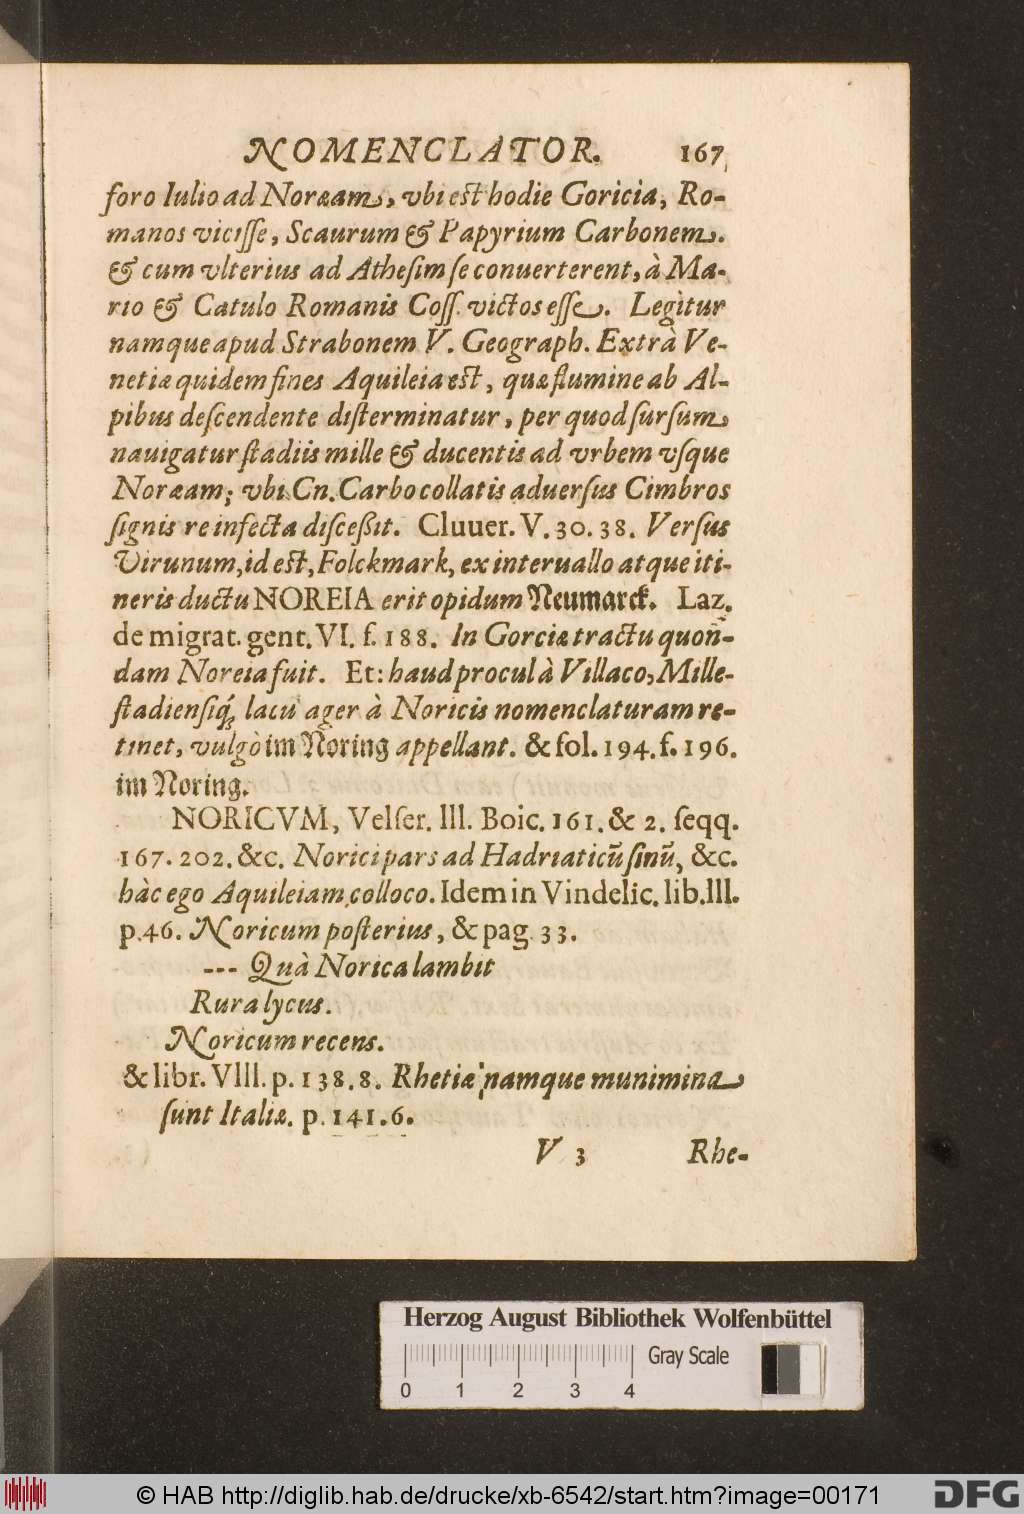 NOMENCLATOR. 167
foro Iulio ad Noræam, vbi est hodie Goricia, Ro-
manos vicisse, Scaurum & Papyrium Carbonem.
& cum vlterius ad Athesim se conuerterent, à Ma-
rio & Catulo Romanis Coss. victos esse. Legitur
namque apud Strabonem V. Geograph. Extrà Ve-
netiæ quidem fines Aquileia est, quæ flumine ab Al-
pibus descendente disterminatur, per quod sursum
nauigatur stadiis mille & ducentis ad vrbem vsque
Noræam; vbi Cn. Carbo collatis aduersus Cimbros
signis re infecta disceßit. Cluuer. V. 30. 38. Versus
Virunum, id est, Folckmark, ex interuallo atque iti-
neris ductu NOREIA erit opidum Neumarck. Laz.
de migrat. gent. VI. f. 188. In Gorciæ tractu quon̄-
dam Noreia fuit. Et: haud procul à Villaco, Mille-
stadiensiq́; lacu ager à Noricis nomenclaturam re-
tinet, vulgò im Noring appellant. & fol. 194. f. 196.
im Noring.
NORICVM, Velser. lll. Boic. 161. & 2. seqq.
167. 202. &c. Norici pars ad Hadriaticū sinū, &c.
hàc ego Aquileiam colloco. Idem in Vindelic. lib. lll.
p. 46. Noricum posterius, & pag. 33.
--- Quà Norica lambit
Rura lycus.
Noricum recens.
& libr. Vlll. p. 138. 8. Rhetiæ namque munimina
sunt Italiæ. p. 141. 6.
V 3 Rhe-
Herzog August Bibliothek Wolfenbüttel
Gray Scale
0 1 2 3 4
© HAB http://diglib.hab.de/drucke/xb-6542/start.htm?image=00171
DFG